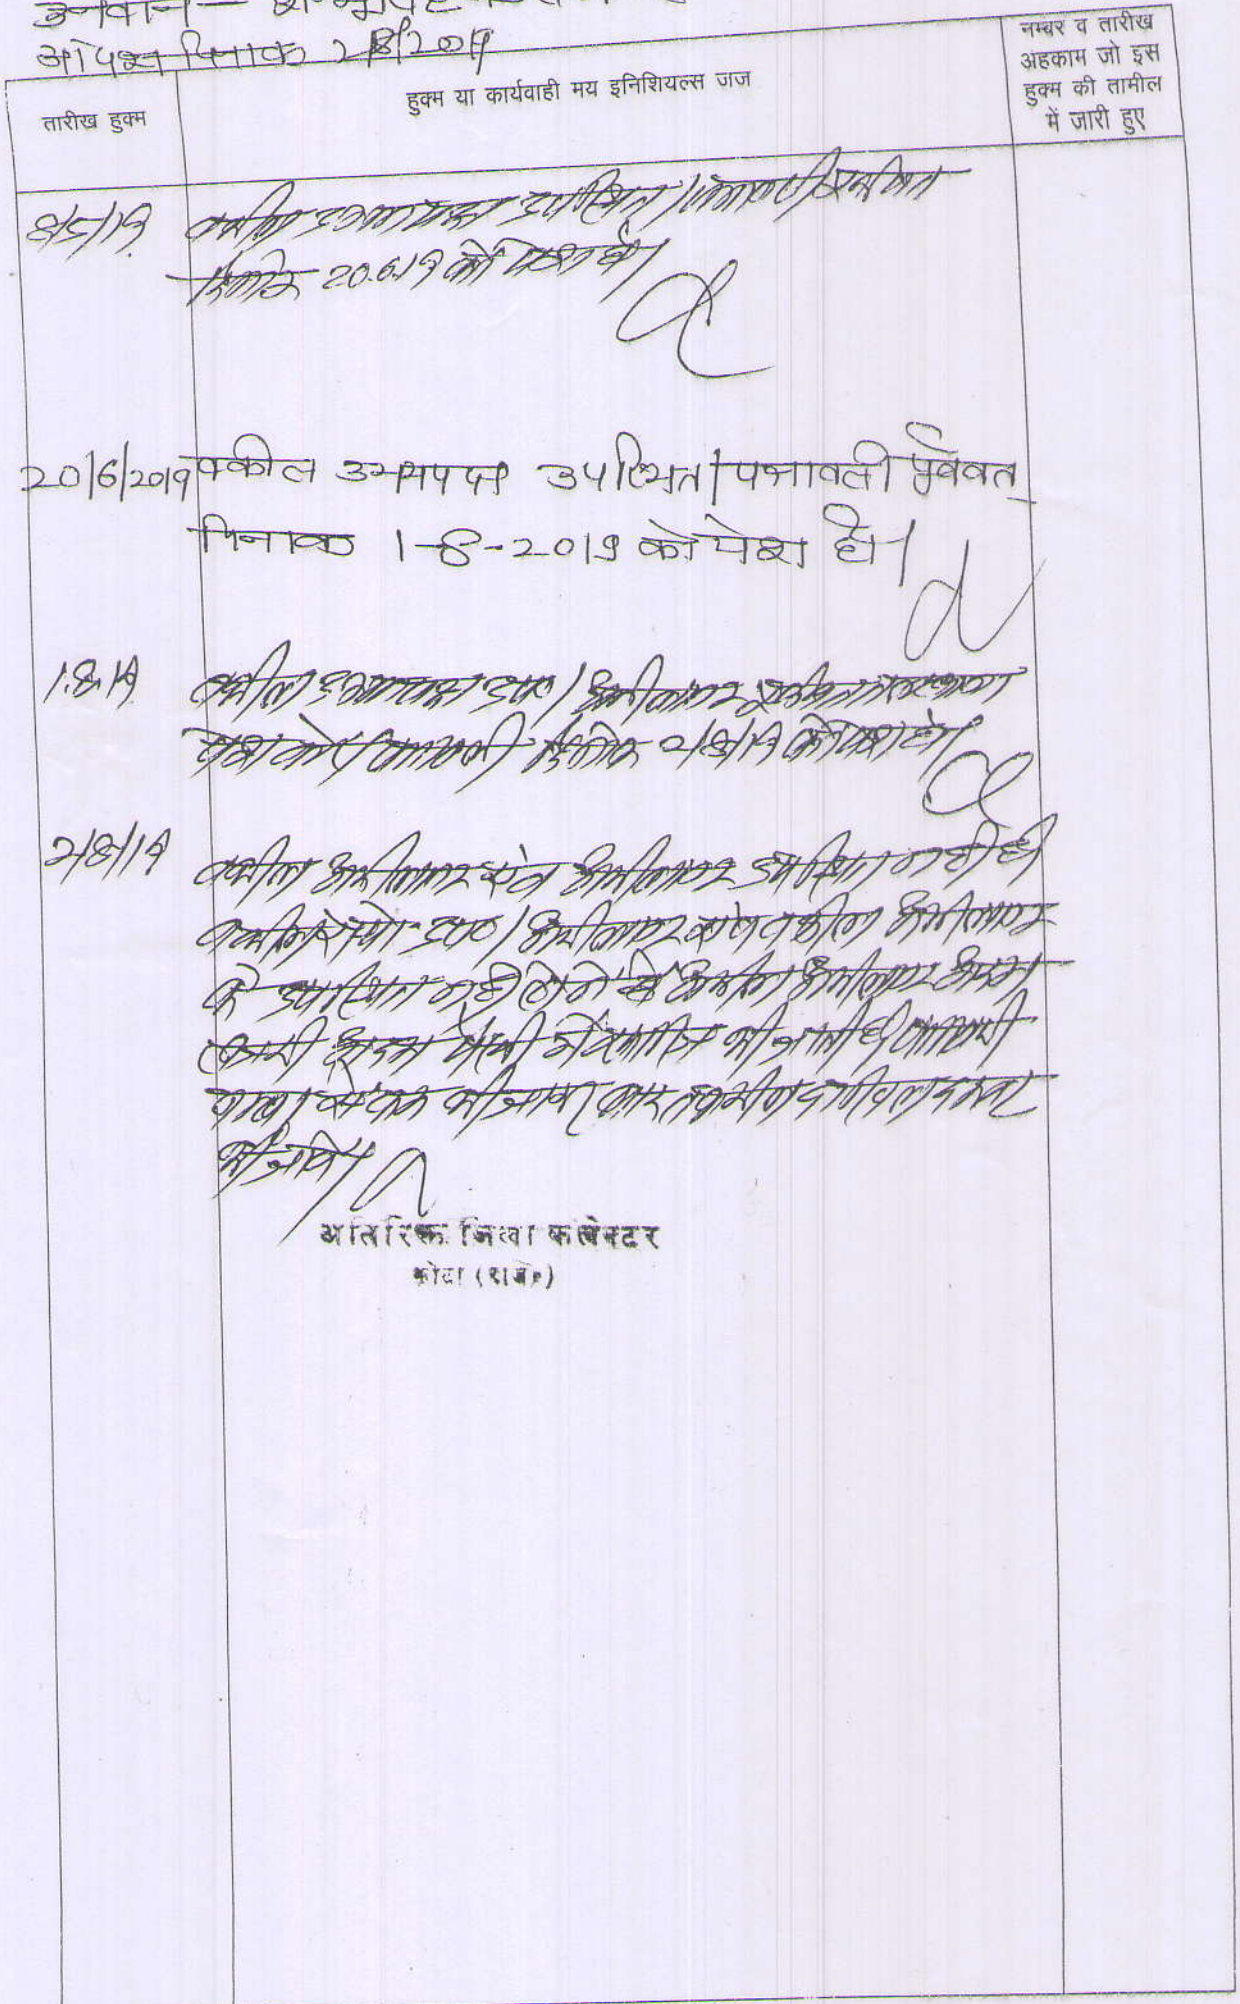 उनवान –
आदेश दिनांक 2/8/2019
तारीख हुक्म
हुक्म या कार्यवाही मय इनिशियल्स जज
नम्बर व तारीख
अहकाम जो इस
हुक्म की तामील
में जारी हुए
8/5/19 वकील उभयपक्ष उपस्थित। पत्रावली पूर्ववत
दिनांक 20.6.19 को पेश हो।
20/6/2019 वकील उभयपक्ष उपस्थित। पत्रावली पूर्ववत
दिनांक 1-8-2019 को पेश हो।
1.8.19 वकील उभयपक्ष उप०। अपीलान्ट
पेश करे। पत्रावली दिनांक 2/8/19 को पेश हो।
2/8/19 वकील अपीलान्ट एवं अपीलान्ट उपस्थित नहीं है
वकील रेस्पो- उप०। अपीलान्ट एवं वकील अपीलान्ट
के उपस्थित नहीं होने से अपील अपीलान्ट अदम
हाजरी अदम पैरवी में खारिज की जाती है। पत्रावली
नम्बर से कम की जाकर बाद तकमील दाखिल दफ्तर
की जावे।
अतिरिक्त जिला कलेक्टर
कोटा (राज०)